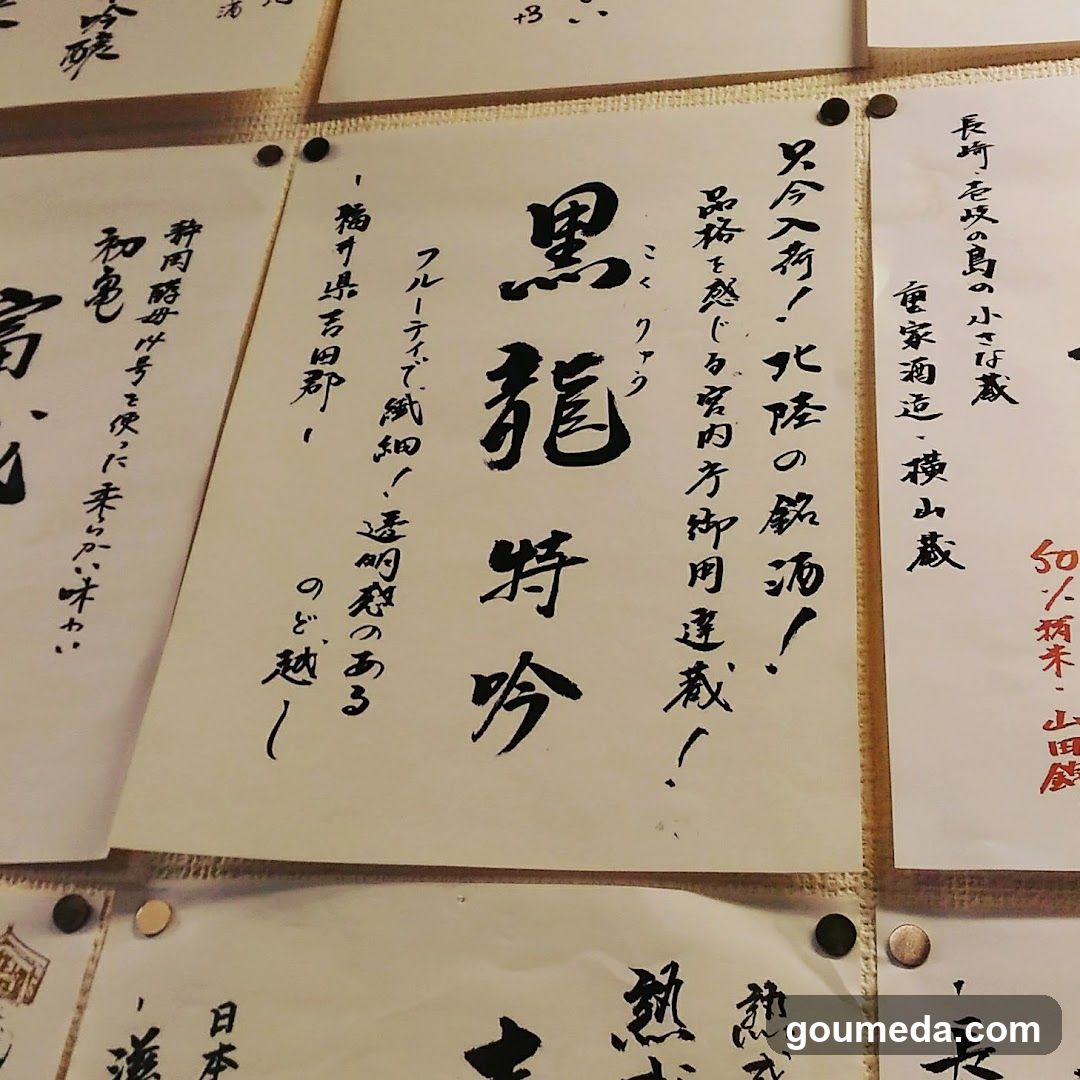 只今入荷!北陸の銘酒!
品格を感じる宮内庁御用達蔵!
黒龍特吟
こくりゅう
フルーティで、繊細!透明感のある
のど越し
-福井県吉田郡-
長崎・壱岐の島の小さな蔵
重家酒造・横山蔵
50%精米・山田錦
静岡酵母
号を使った柔らかい味わい
初亀
吟醸
+3
熟成
熟成
日本
goumeda.com